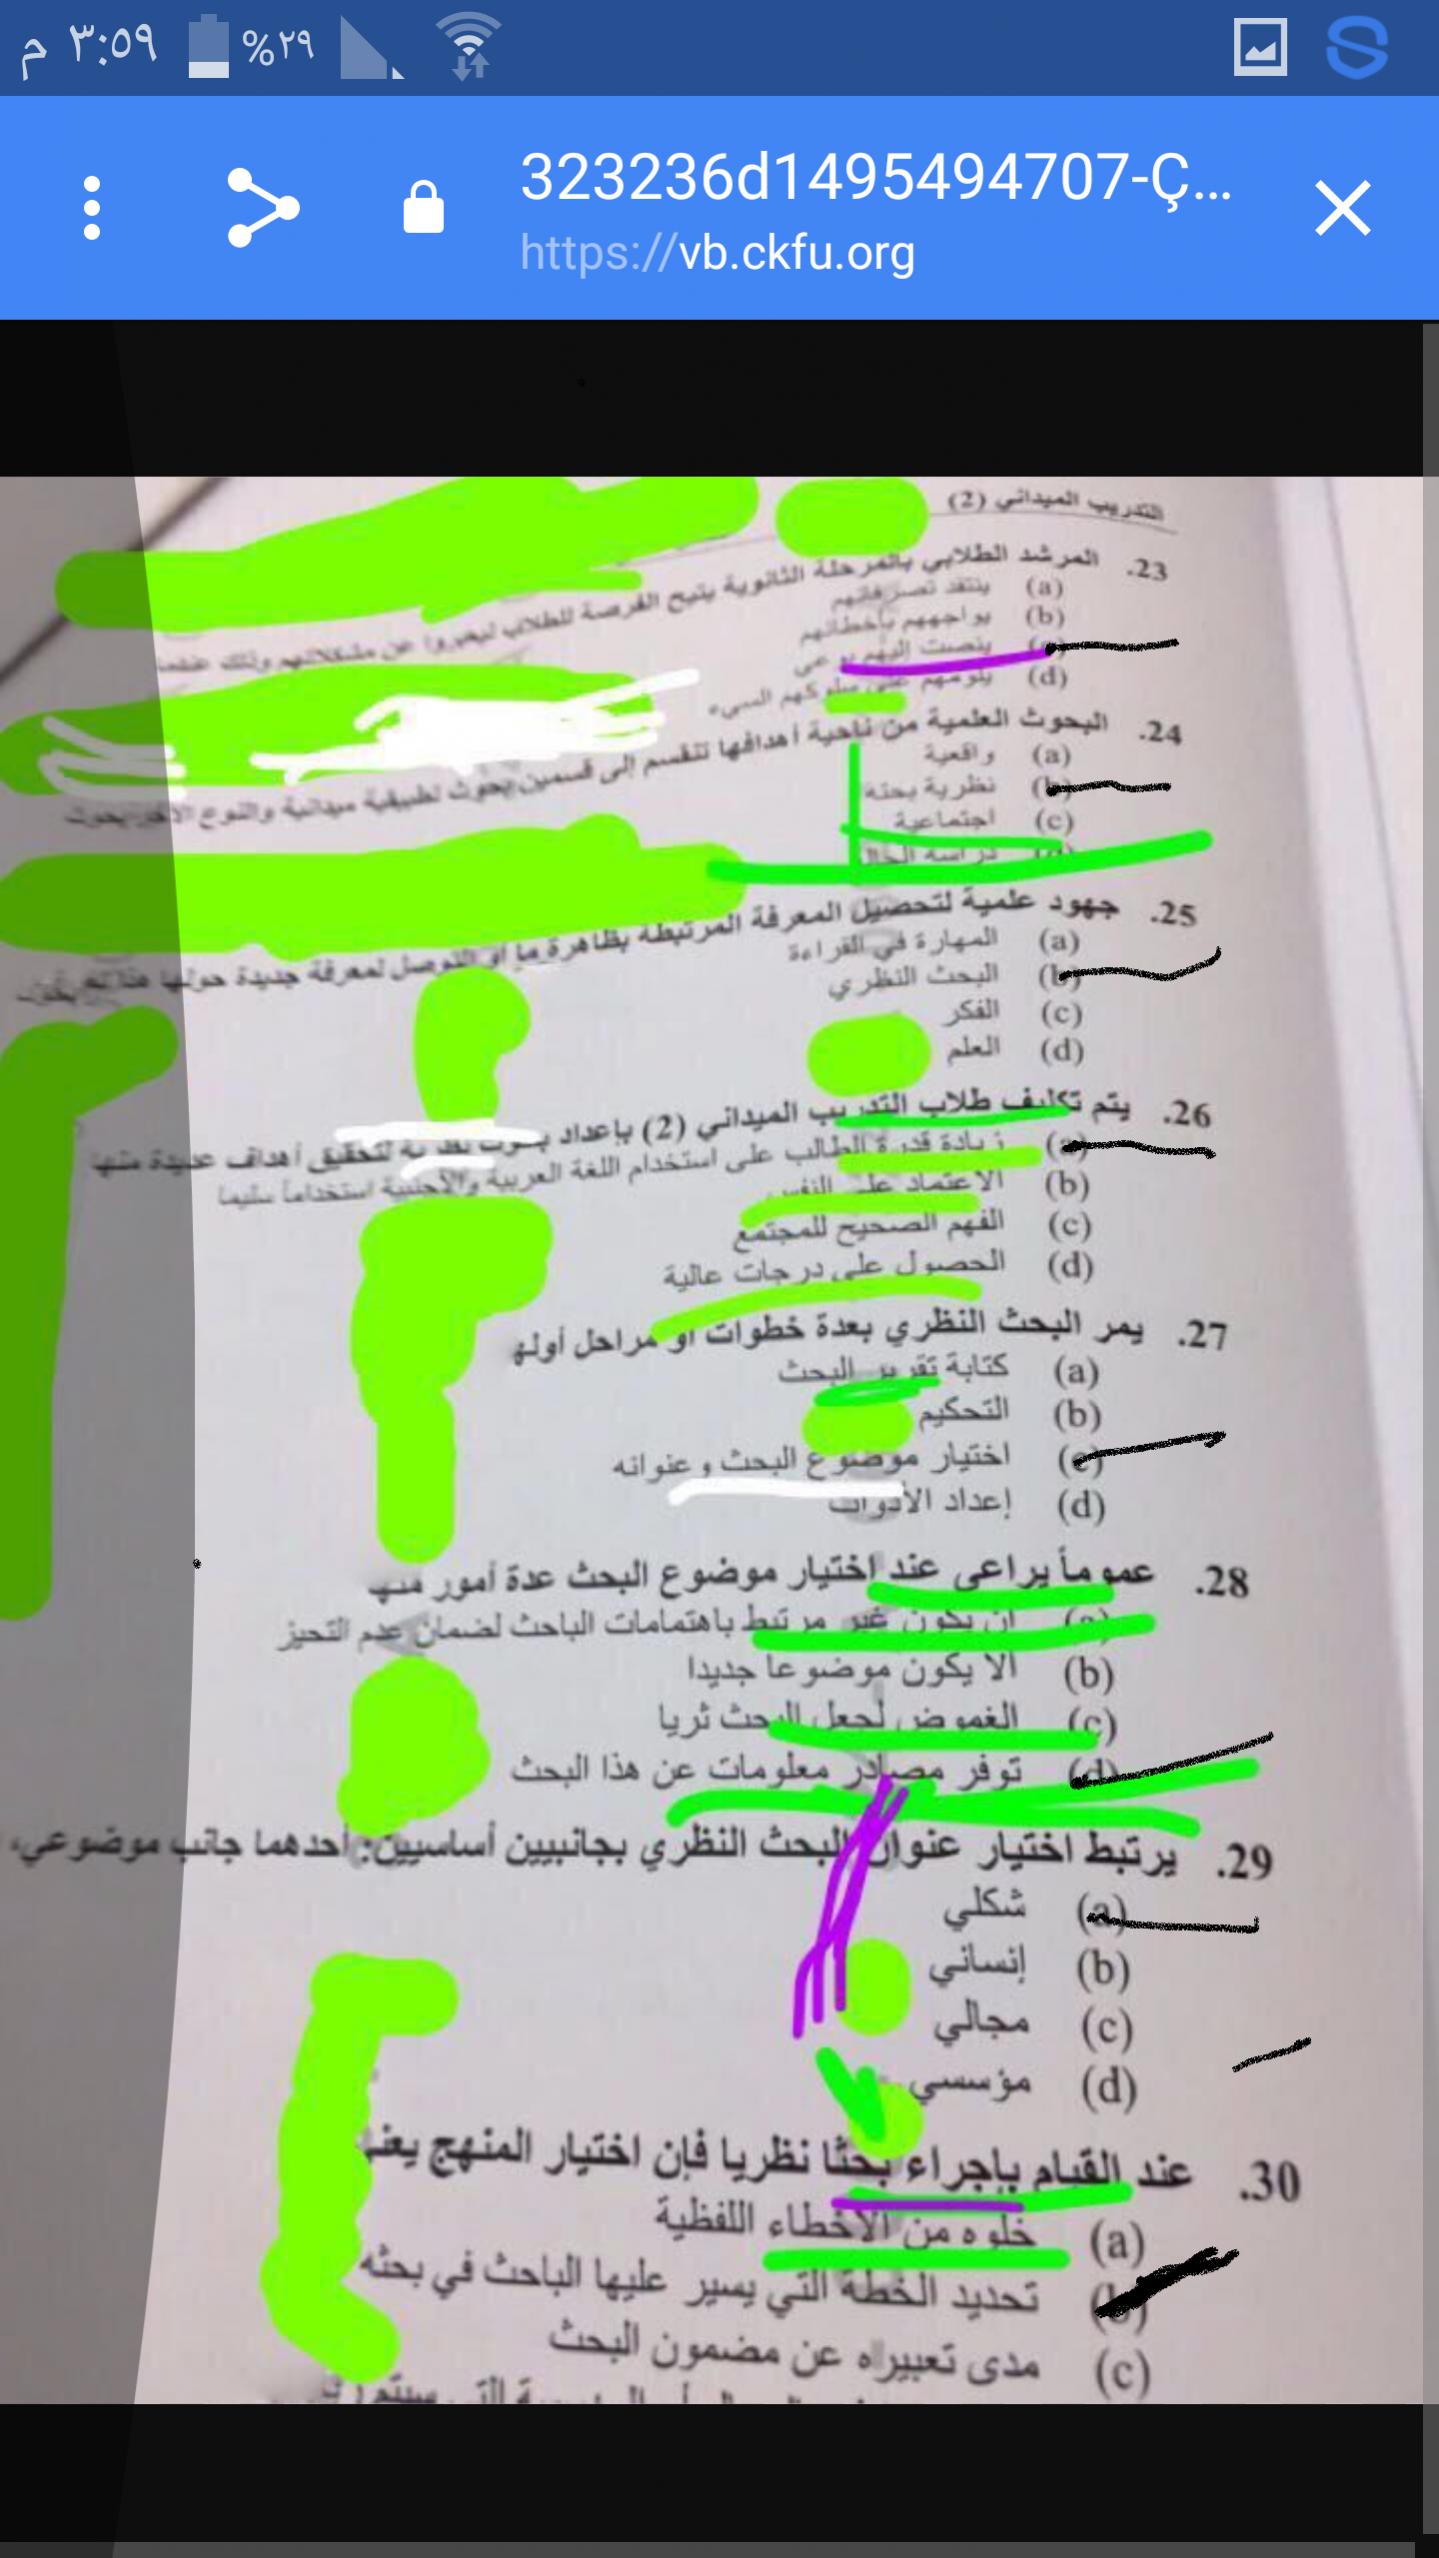 ٣:٥٩ م
%٢٩
323236d1495494707-Ç...
https://vb.ckfu.org
التدريب الميداني (2)
.23 المرشد الطلابي بالمرحلة الثانوية يتيح الفرصة للطلاب ليعبروا عن مشكلاتهم وذلك عندما
(a) ينتقد تصرفاتهم
(b) يواجههم بأخطائهم
ينصت إليهم
(d) يلومهم على سلوكهم السيء
.24 البحوث العلمية من ناحية أهدافها تنقسم إلى قسمين بحوث تطبيقية ميدانية والنوع الآخر بحوث
(a) واقعية
(b) نظرية بحتة
(c) اجتماعية
(d) دراسة الحالة
.25 جهود علمية لتحصيل المعرفة المرتبطة بظاهرة ما أو التوصل لمعرفة جديدة حولها
(a) المهارة في القراءة
(b) البحث النظري
(c) الفكر
(d) العلم
.26 يتم تكليف طلاب التدريب الميداني (2) بإعداد بحوث نظرية لتحقيق أهداف عديدة منها
(a) زيادة قدرة الطالب على استخدام اللغة العربية والأجنبية استخداماً سليما
(b) الاعتماد على النفس
(c) الفهم الصحيح للمجتمع
(d) الحصول على درجات عالية
.27 يمر البحث النظري بعدة خطوات أو مراحل أولها
(a) كتابة تقرير البحث
(b) التحكيم
(c) اختيار موضوع البحث وعنوانه
(d) إعداد الأدوات
.28 عموماً يراعى عند اختيار موضوع البحث عدة أمور منها
(a) أن يكون غير مرتبط باهتمامات الباحث لضمان عدم التحيز
(b) ألا يكون موضوعا جديدا
(c) الغموض لجعل البحث ثريا
(d) توفر مصادر معلومات عن هذا البحث
.29 يرتبط اختيار عنوان البحث النظري بجانبيين أساسيين: أحدهما جانب موضوعي،
(a) شكلي
(b) إنساني
(c) مجالي
(d) مؤسسي
.30 عند القيام بإجراء بحثا نظريا فإن اختيار المنهج يعني
(a) خلوه من الأخطاء اللفظية
(b) تحديد الخطة التي يسير عليها الباحث في بحثه
(c) مدى تعبيراه عن مضمون البحث